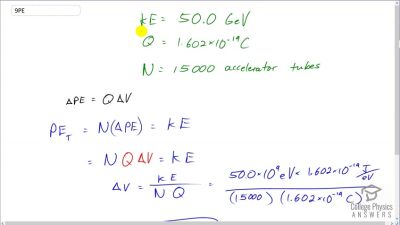 9PE
KE = 50.0 GeV
Q = 1.602×10⁻¹⁹ C
N = 15000 accelerator tubes
ΔPE = QΔV
PE_T = N(ΔPE) = KE
= N Q ΔV = KE
ΔV = KE / N Q = 50.0×10⁹ eV × 1.602×10⁻¹⁹ J/eV / (15000)(1.602×10⁻¹⁹ C)
College Physics
ANSWERS